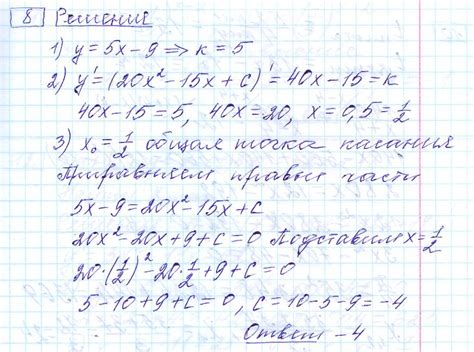 8 Решение
1) y = 5x − 9 ⇒ k = 5
2) y' = (20x² − 15x + c)' = 40x − 15 = k
40x − 15 = 5, 40x = 20, x = 0,5 = 1/2
3) x₀ = 1/2 общая точка касания
Приравняем правые части
5x − 9 = 20x² − 15x + c
20x² − 20x + 9 + c = 0 Подставим x = 1/2
20·(1/2)² − 20·1/2 + 9 + c = 0
5 − 10 + 9 + c = 0, c = 10 − 5 − 9 = −4
Ответ −4